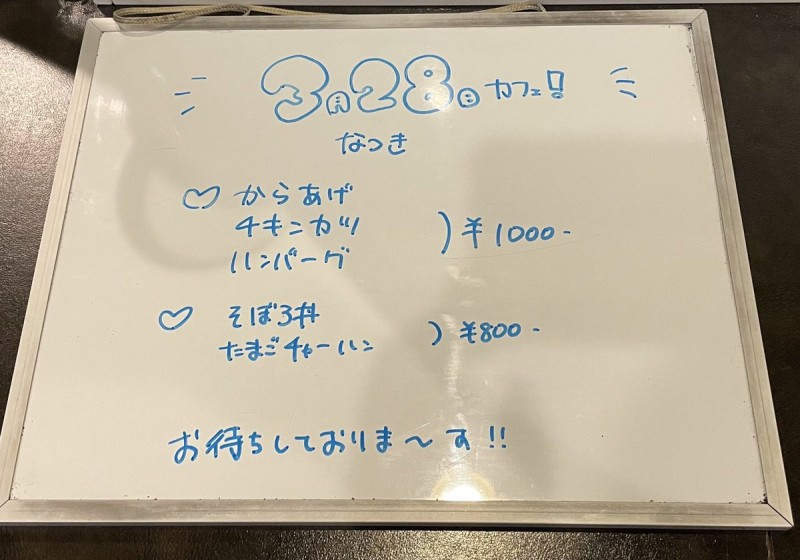 3月28日カフェ!
なつき
♡ からあげ
チキンカツ
ハンバーグ
) ¥1000-
♡ そぼろ丼
たまごチャーハン
) ¥800-
お待ちしておりま〜す!!